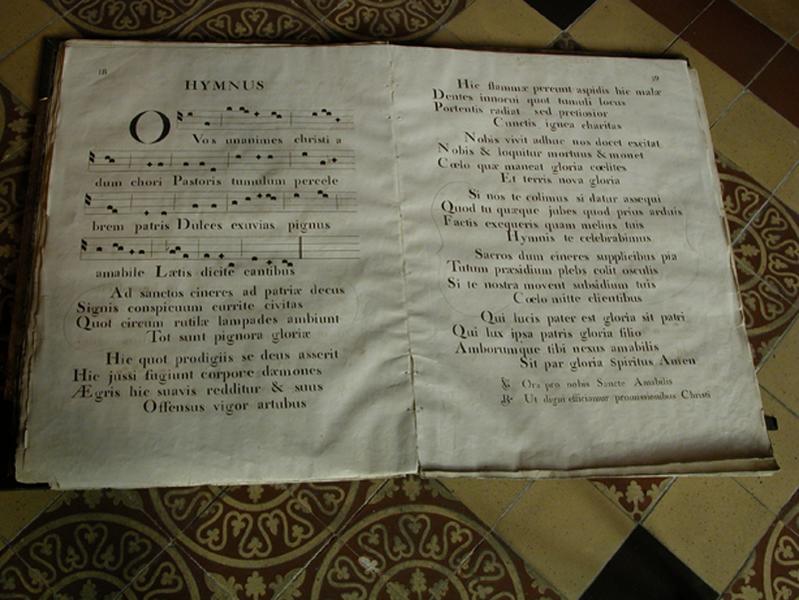 18
HYMNUS
O Vos unanimes christi a
dum chori Pastoris tumulum percele
brem patris Dulces exuvias pignus
amabile Lætis dicite cantibus
Ad sanctos cineres ad patriæ decus
Signis conspicuum currite civitas
Quot circum rutilæ lampades ambiunt
Tot sunt pignora gloriæ
Hic quot prodigiis se deus asserit
Hic jussi fugiunt corpore dæmones
Ægris hic suavis redditur & suus
Offensus vigor artubus
19
Hic flammæ pereunt aspidis hic malæ
Dentes innocui quot tumuli locus
Portentis radiat sed pretiosior
Cunctis ignea charitas
Nobis vivit adhuc nos docet excitat
Nobis & loquitur mortuus & monet
Cœlo quæ maneat gloria cœlites
Et terris nova gloria
Si nos te colimus si datur assequi
Quod tu quæque jubes quod prius arduis
Factis exequeris quam melius tuis
Hymnis te celebrabimus
Sacros dum cineres supplicibus pia
Tutum præsidium plebs colit osculis
Si te nostra movent subsidium tuis
Cœlo mitte clientibus
Qui lucis pater est gloria sit patri
Qui lux ipsa patris gloria filio
Amborumque tibi nexus amabilis
Sit par gloria Spiritus Amen
℣. Ora pro nobis Sancte Amabilis
℟. Ut digni efficiamur promissionibus Christi